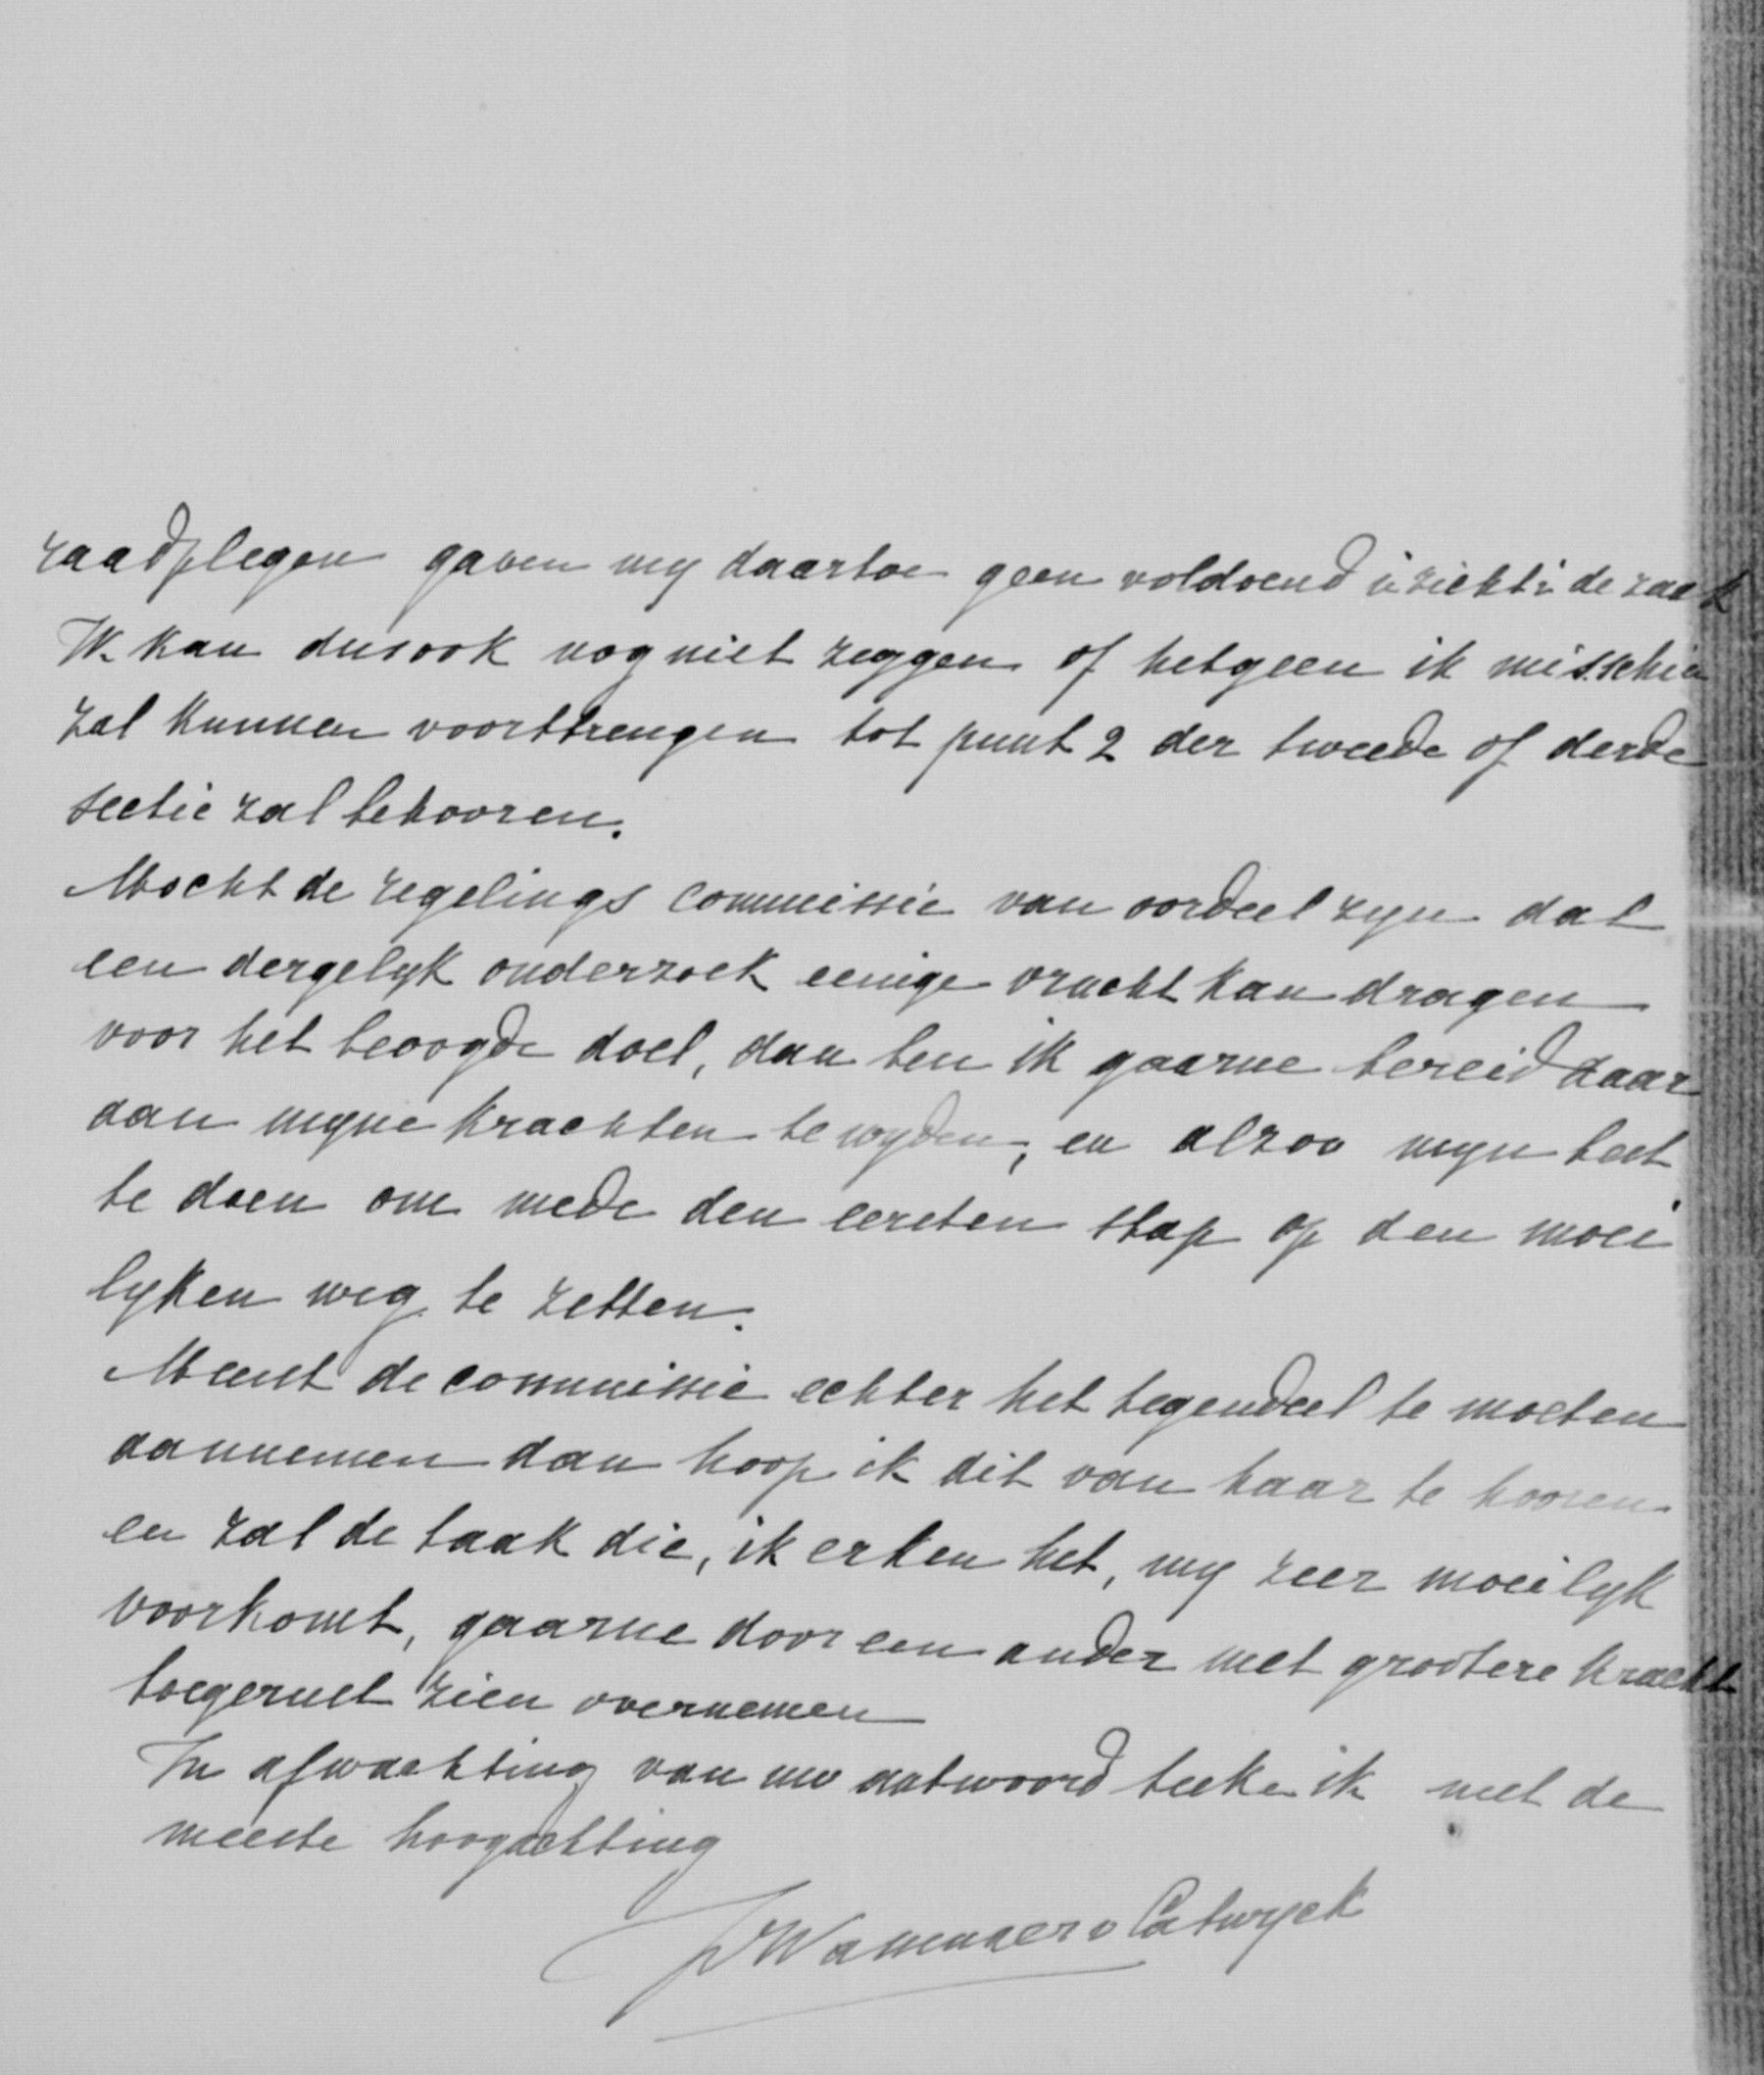 raadplegen gaven my daartoe geen voldoend izicht i de zaak
Ik kan dus ook nog niet zeggen of hetgeen ik misschien
zal kunnen voortbrengen tot punt 2 der tweede of derde
sectie zal behooren.
Mocht de regelings commissie van oordeel zyn dat
een dergelyk onderzoek eenige vrucht kan dragen
voor het beoogde doel, dan ben ik gaarne bereid daar
aan myne krachten te wyden, en alzoo myn best
te doen om mede den eersten stap op den moei
lyken weg te zetten.
Meent de commissie echter het tegendeel te moeten
aannemen dan hoop ik dit van haar te hooren
en zal de taak die, ik erken het, my zeer moeilyk
voorkomt, gaarne door een ander met grootere kracht
toegerust zien overnemen
In afwachting van uw antwoord teeken ik met de
meeste hoogachting
Wassenaer v Catwyck